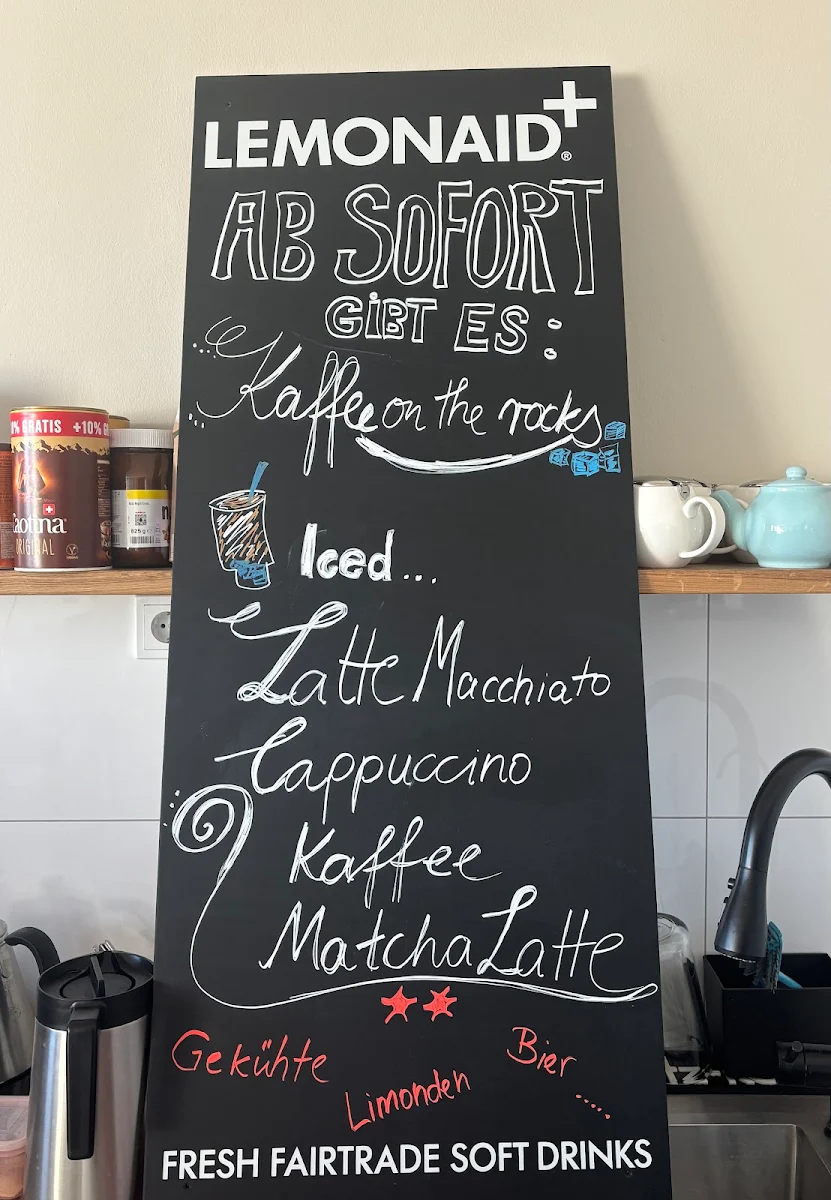 LEMONAID+®
AB SOFORT
GIBT ES:
Kaffee on the rocks
Iced...
Latte Macchiato
Cappuccino
Kaffee
Matcha Latte
Gekühte
Bier
Limonden
.....
FRESH FAIRTRADE SOFT DRINKS
% GRATIS +10% G
aotina
ORIGINAL
825g e